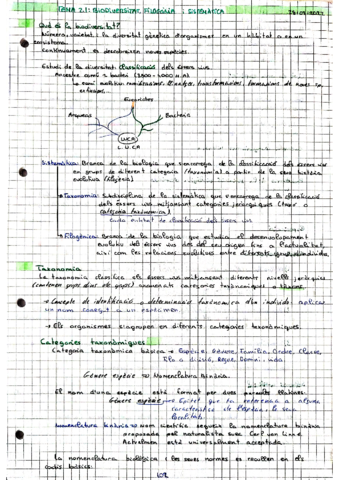 TEMA 2.1: BIODIVERSITAT, FILOGÈNIA i SISTEMÀTICA
Què és la biodiversitat?
Número, varietat i la diversitat genètica d'organismes en un hàbitat o en un
ecosistema.
Contínuament es descobreixen noves espècies
Estudi de la diversitat: classificació dels éssers vius.
Ancestre comú
Eucariotes
Arqueas
Bacteria
LUCA
L.U.C.A
Sistemàtica: Branca de la biologia que s'encarrega de la classificació dels éssers vius
en grups de diferent categoria (taxonomia) a partir de la seva història
evolutiva (filogènia)
Taxonomia: Subdisciplina de la sistemàtica que s'encarrega de la classificació
dels éssers vius mitjançant categories jeràrquiques (taxó o
categoria taxonòmica)
cada unitat de classificació dels éssers vius
Filogènia: Branca de la biologia que estudia el desenvolupament
evolutiu dels éssers vius des del seu origen fins a l'actualitat,
així com les relacions evolutives entre diferents
Taxonomia
La taxonomia classifica els éssers vius mitjançant diferents nivells jeràrquics
anomenats categories taxonòmiques o tàxons.
Concepte de identificació o determinació taxonòmica d'un individu aplicar
un nom conegut a un espècimen.
Els organismes s'agrupen en diferents categories taxonòmiques.
Categories taxonòmiques
Categoria taxonòmica bàsica → Espècie, Gènere, Família, Ordre, Classe,
Filo o divisió, Regne, Domini
Gènere espècie → Nomenclatura Binària.
El nom d'una espècie està format per dues paraules llatines:
Gènere espècie
característica
localitat.
Nomenclatura binària → nom científic segueix la nomenclatura binària
proposada pel naturalista suec Carl von Linné
Actualment està universalment acceptada.
La nomenclatura biològica i les seves normes es recullen en els
codis bàsics: